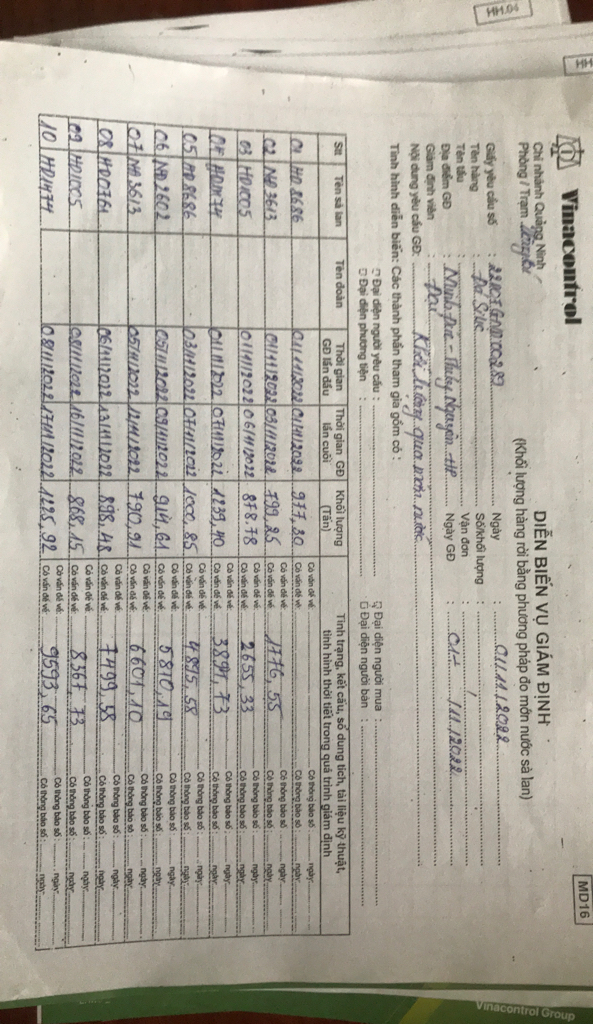 HH.04
HH
Vinacontrol
MD16
Chi nhánh Quảng Ninh
Phòng / Trạm
DIỄN BIẾN VỤ GIÁM ĐỊNH
(Khối lượng hàng rời bằng phương pháp đo mớn nước sà lan)
Giấy yêu cầu số : Ngày : 01.11.2022
Tên hàng : Số/khối lượng :
Tên tàu : Vận đơn :
Địa điểm GĐ : Minh Đức - Thủy Nguyên - HP Ngày GĐ : 01- /11/2022
Giám định viên : Đại
Nội dung yêu cầu GĐ: Khối lượng qua mớn nước
Tình hình diễn biến: Các thành phần tham gia gồm có :
Đại diện người yêu cầu : Đại diện người mua :
Đại diện phương tiện : Đại diện người bán :
Stt Tên sà lan Tên đoàn Thời gian GĐ lần đầu Thời gian GĐ lần cuối Khối lượng (Tấn) Tình trạng, kết cấu, sổ dung tích, tài liệu kỹ thuật, tình hình thời tiết trong quá trình giám định
01 HD 8686 01/11/2022 01/11/2022 977,30 Có vấn đề về: Có thông báo số : ngày:
02 NĐ 3613 01/11/2022 03/11/2022 799,25 Có vấn đề về: 1776,55 Có thông báo số : ngày:
03 HD1005 01/11/2022 06/11/2022 878.78 Có vấn đề về: 2655,33 Có thông báo số : ngày:
04 HD1474 01/11/2022 07/11/2022 1239,40 Có vấn đề về: 3894,73 Có thông báo số : ngày:
05 HD 8686 03/11/2022 07/11/2022 1000,85 Có vấn đề về: 4895,58 Có thông báo số : ngày:
06 NĐ 2602 05/11/2022 09/11/2022 914,61 Có vấn đề về: 5810,19 Có thông báo số : ngày:
07 NĐ 3613 05/11/2022 12/11/2022 790,91 Có vấn đề về: 6601,10 Có thông báo số : ngày:
08 HD0761 06/11/2022 13/11/2022 898,48 Có vấn đề về: 7499,58 Có thông báo số : ngày:
09 HD1005 08/11/2022 16/11/2022 868,15 Có vấn đề về: 8367,73 Có thông báo số : ngày:
10 HD1474 08/11/2022 17/11/2022 1225,92 Có vấn đề về: 9593,65 Có thông báo số : ngày:
Vinacontrol Group